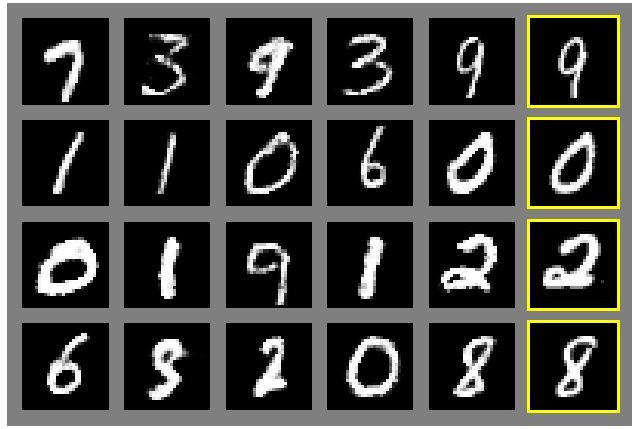 7 3 9 3 9 9
1 1 0 6 0 0
0 1 9 1 2 2
6 8 2 0 8 8